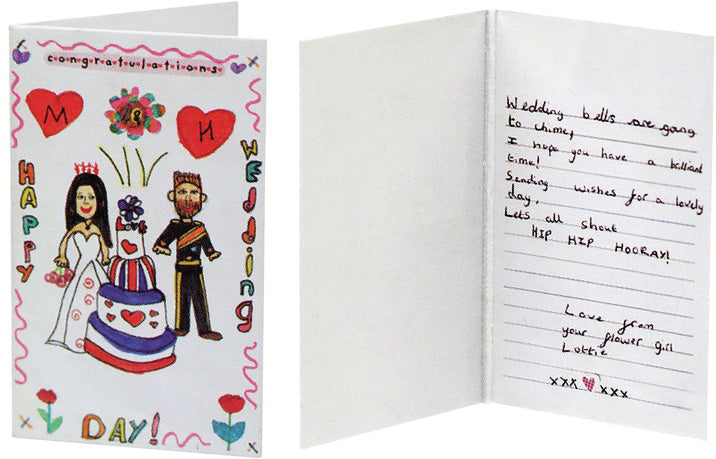 congratulations
M
&
H
HAPPY
WEdding
Love
DAY!
Wedding bells are going
to chime,
I hope you have a brilliant
time!
Sending wishes for a lovely
day,
Lets all shout
HIP HIP HOORAY!
Love from
your flower girl
Lottie
xxx xxx